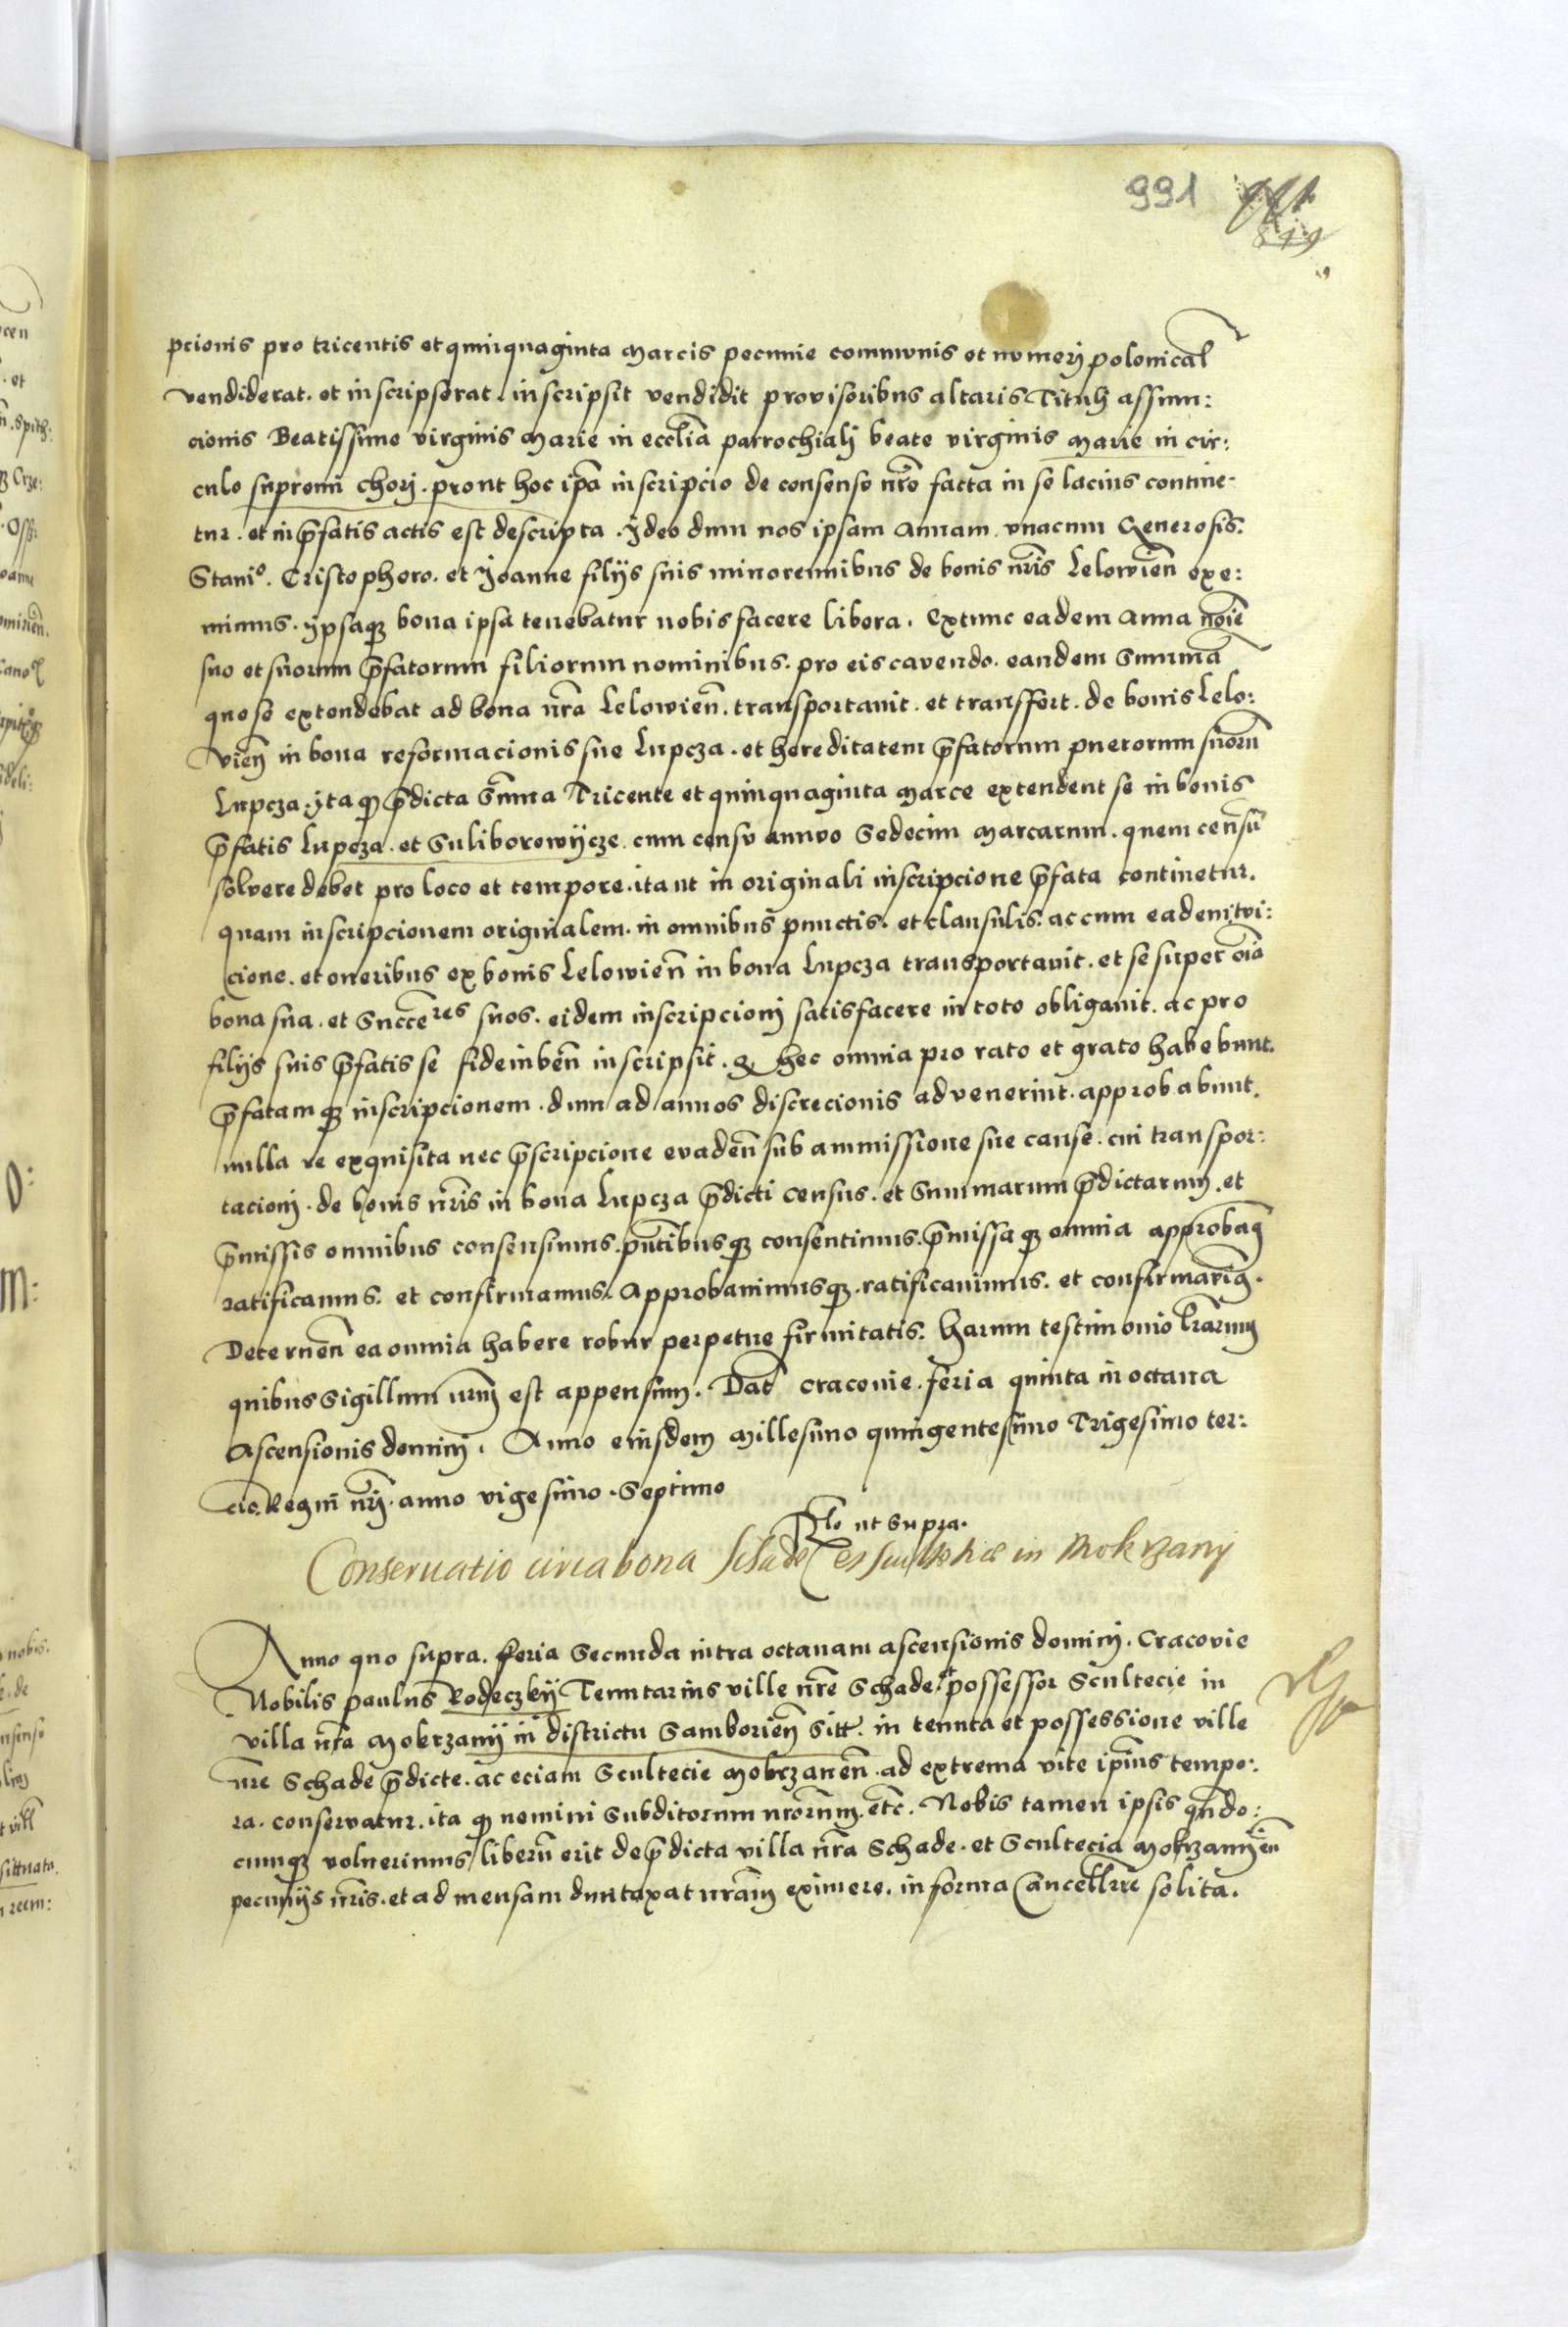 991
849
pcionis pro tricentis et quinquaginta Marcis pecunie communis et numerj polonical
vendiderat. et inscripserat. inscripsit vendidit provisoribus altaris Tituli assum:
cionis Beatissime virginis Marie in ecclia parrochialj beate virginis Marie in cir:
culo supremi chorj. prout hoc ipa inscripcio de consensu nro facta in se lacius contine-
tur. et in pfatis actis est descripta. Ideo dum nos ipsam Annam. vnacum Generosis.
Stanio. Cristophoro. et Joanne filijs suis minorennibus de bonis nris Lelowien exe:
mimus. ipsaq bona ipsa tenebatur nobis facere libera. Extunc eadem Anna noie
suo et suorum pfatorum filiorum nominibus. pro eis cavendo. eandem Summa
que se extendebat ad bona nra Lelowien. transportavit. et transffert. de bonis Lelo:
vien in bona reformacionis sue Lupcza. et hereditatem pfatorum puerorum suoru
Lupcza. ita q pdicta Suma Tricente et quinquaginta Marce extendent se in bonis
pfatis Lupcza. et Suliborowijcze. cum censu annuo Sedecim Marcarum. quem censu
solvere debet pro loco et tempore. ita ut in originali inscripcione pfata continetur.
quam inscripcionem originalem. in omnibus punctis. et clausulis. ac cum eadem
cione. et oneribus ex bonis Lelowien in bona Lupcza transportavit. et se super oia
bona sua. et Succeres suos. eidem inscripcionj satisfacere in toto obligavit. ac pro
filijs suis pfatis se fideiuben inscripsit. q hec omnia pro rato et grato habebunt.
pfatamq inscripcionem. dum ad annos discrecionis advenerint. approbabunt.
nulla re exquisita nec pscripcione evaden sub ammissione sue cause. cui transpor:
tacionj. de bonis nris in bona Lupcza pdicti census. et Summarum pdictarum. et
pmissis omnibus consensimus. pntibusq consentimus. pmissaq omnia approbam
ratificamus. et confirmamus. Approbavimusq. ratificavimus. et confirmavim.
Decernen ea omnia habere robur perpetue firmitatis. Harum testimonio lrarum
quibus Sigillum nrum est appensum. Dat Cracovie. feria quinta in octava
Ascensionis dominj. Anno eiusdem Millesimo quingentesimo Trigesimo ter:
cio. Regni nrj. anno vigesimo. Septimo
Rlo ut supra.
Conservatio circa bona Schade et Scultetiae in Mokrzany
Anno quo supra. feria Secunda intra octavam ascensionis dominj. Cracovie
Nobilis paulus Rodeczkij Tenutarius ville nre Schade. et possessor Scultecie in
villa nra Mokrzanij in districtu Samborien Sitt. in tenuta et possessione ville
nre Schade pdicte. ac eciam Scultecie Mokrzanen. ad extrema vite ipius tempo:
ra. conservatur. ita q nemini Subditorum nrorum. etc. Nobis tamen ipsis qndo:
cunq voluerimus liberu erit de pdicta villa nra Schade. et Scultecia Mokrzanijen
pecunijs nris. et ad mensam duntaxat nram eximere. in forma Cancellrie solita.